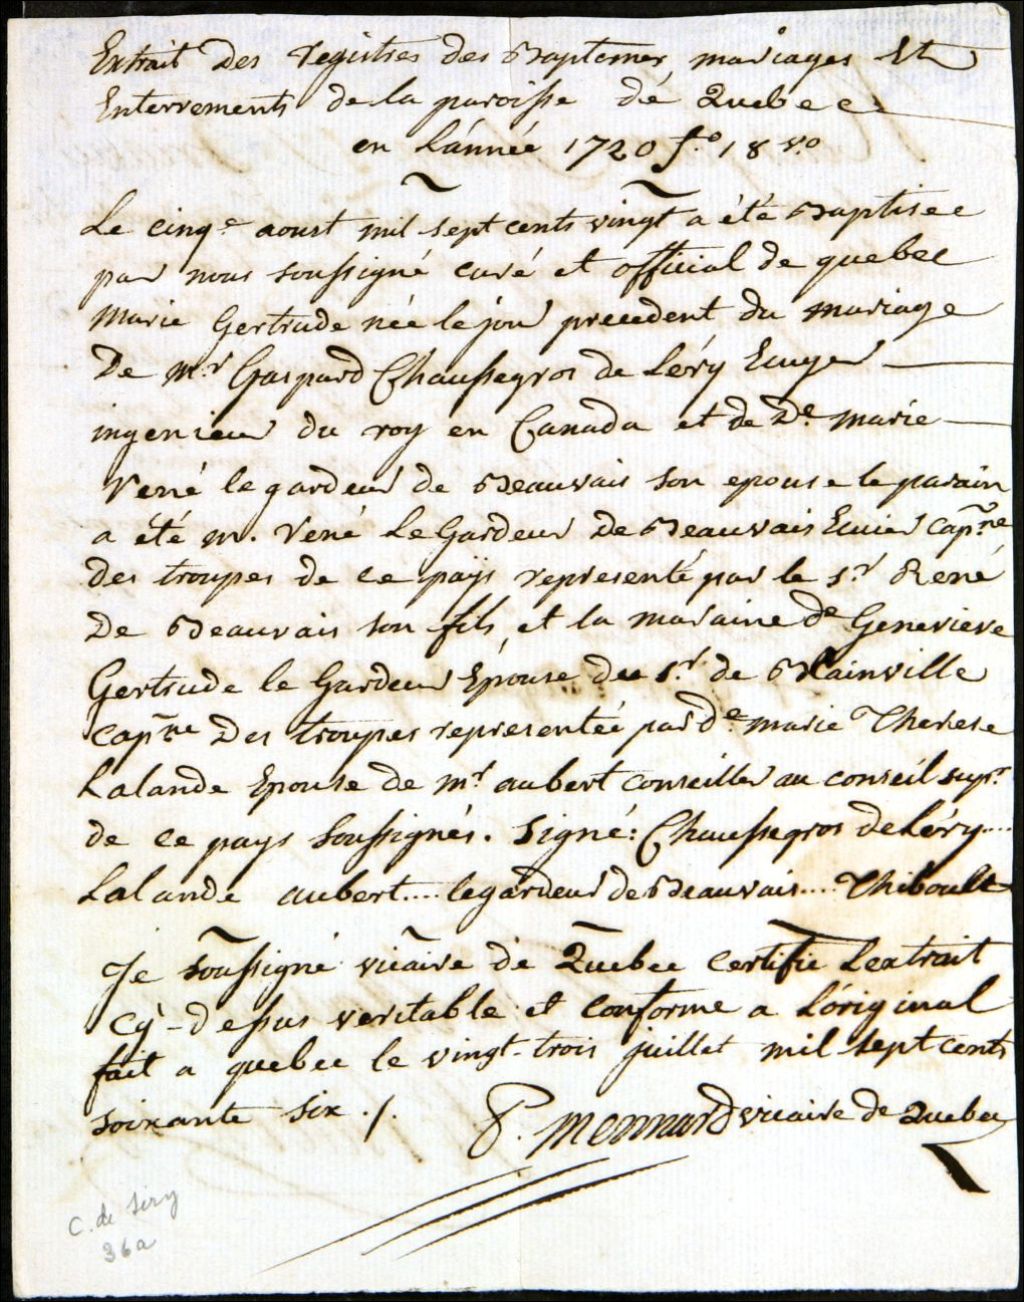 Extrait Des registres des Baptemes, mariages Et
Enterrements de la paroisse dé Quebec
en L'année 1720 f.º 18 v.º
Le cinq.e aoust mil sept cents vingt a été Baptisee
par nous soussigné curé et official de quebec
Marie Gertrude née le jour precedent du mariage
De Mr. Gaspard Chaussegros de Léry Ecuyer
ingenieur du roy en Canada et de De. marie
rené legardeur de Beauvais son epouse le parain
a été m. rené LeGardeur De Beauvais Ecuier Capne.
des troupes de ce pays representé par le sr. René
De Beauvais son fils, et la maraine de Genevieve
Gertrude le Gardeur Épouse du Sr. de Blainville
Capne Des troupes representée par de. marie Therese
Lalande Epouse de mr aubert conseiller au conseil supr.
de ce pays soussignés. Signé: Chaussegros de Léry....
Lalande aubert.... legardeur de Beauvais.... Thiboult
Je soussigné vicaire de Quebec certifie L'extrait
Cy-dessus veritable et conforme a L'original
fait a quebec le vingt-trois juillet mil sept cents
soixante six ./. P. Mennard vicaire de Quebec
C. de Léry
36a